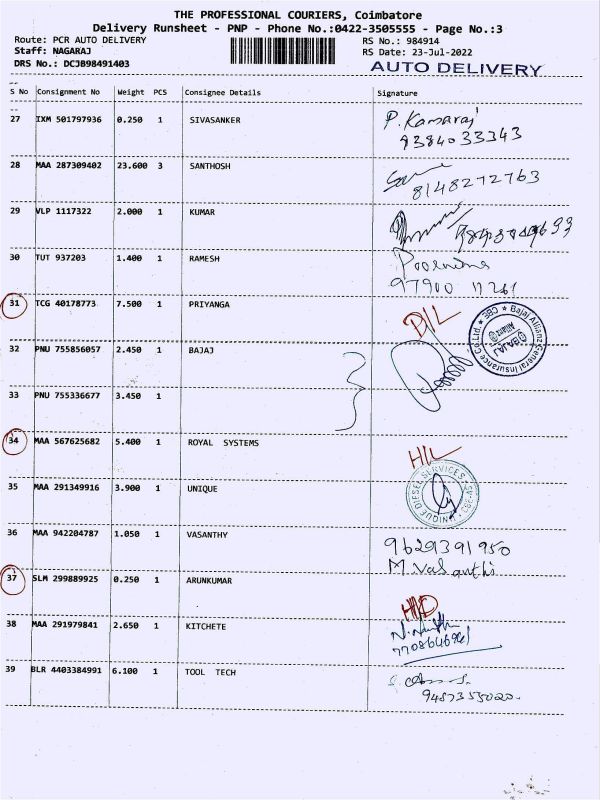 THE PROFESSIONAL COURIERS, Coimbatore
Delivery Runsheet - PNP - Phone No.:0422-3505555 - Page No.:3
Route: PCR AUTO DELIVERY RS No.: 984914
Staff: NAGARAJ RS Date: 23-Jul-2022
DRS No.: DCJB98491403 AUTO DELIVERY
S No Consignment No Weight PCS Consignee Details Signature
27 IXM 501797936 0.250 1 SIVASANKER P. Kamaraj
9384033343
28 MAA 287309402 23.600 3 SANTHOSH
8148272763
29 VLP 1117322 2.000 1 KUMAR
30 TUT 937203 1.400 1 RAMESH Poornima
97900
31 TCG 40178773 7.500 1 PRIYANGA D/L
Bajaj Allianz General Insurance Co. Ltd. CBE
BAJAJ
Allianz
32 PNU 755856057 2.450 1 BAJAJ
33 PNU 755336677 3.450 1
34 MAA 567625682 5.400 1 ROYAL SYSTEMS H/L
35 MAA 291349916 3.900 1 UNIQUE
UNIQUE DIESEL SERVICES
36 MAA 942204787 1.050 1 VASANTHY 9629391950
M. Vasanthi
37 SLM 299889925 0.250 1 ARUNKUMAR
38 MAA 291979841 2.650 1 KITCHETE
39 BLR 4403384991 6.100 1 TOOL TECH
9487355020